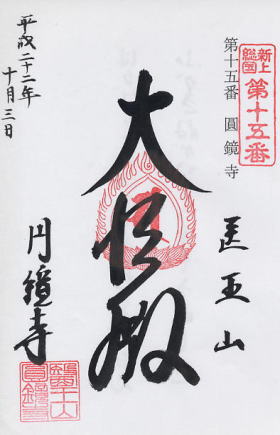 新上
総国
第十五番
第十五番 圓鏡寺
医王山
大悲殿
平成二十二年
十月三日
円鏡寺
醫王山
圓鏡寺